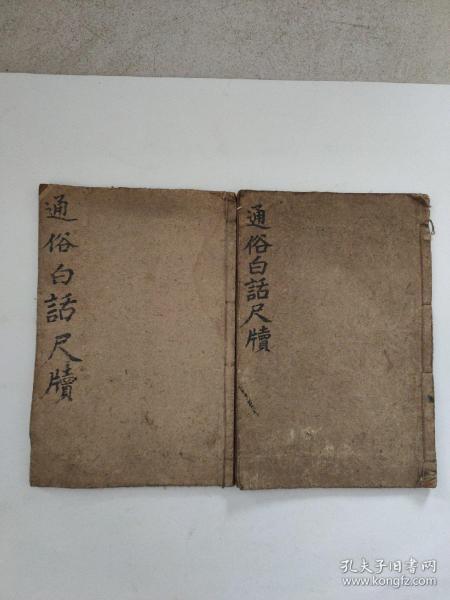 通俗白話尺牘
通俗白話尺牘
孔夫子旧书网
www.kongfz.com